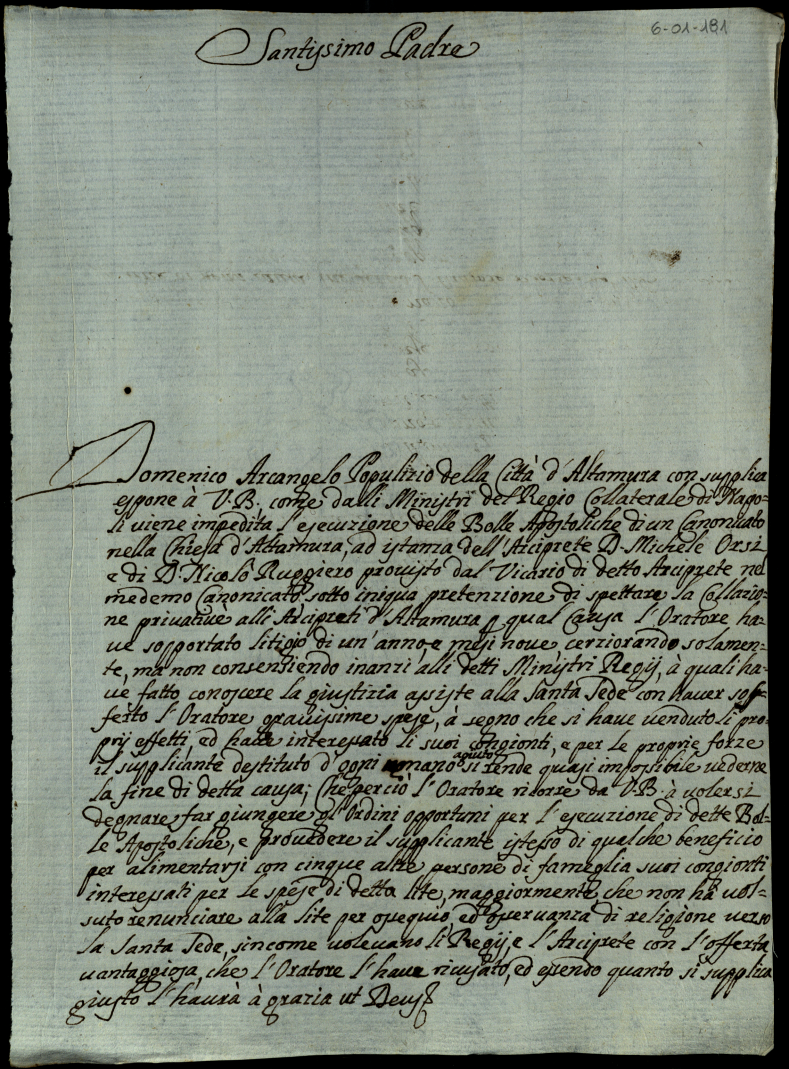 6-01-191
Santissimo Padre
Domenico Arcangelo Populizio della Città d'Altamura con supplica
espone à V.B. come dalli Ministri del Regio Collaterale di Napo=
li viene impedita l'esecuzione delle Bolle Apostoliche di un Canonicato
nella Chiesa d'Altamura, ad istanza dell'Arciprete D. Michele Orsi
e di D. Nicolò Ruggiero provisto dal Vicario di detto Arciprete nel
medemo Canonicato sotto iniqua pretenzione di spettare la Collazio=
ne privativè alli Arcipreti d'Altamura p qual Causa l'Oratore ha=
ve sopportato litigio di un'anno, e mesi nove cerziorando solamen=
te, ma non consentiendo inanzi alli detti Ministri Regij, à quali ha=
ve fatto conoscere la giustizia assiste alla Santa Sede con haver sof=
ferto l'Oratore gravissime spese, à segno che si have venduto li pro=
prij effetti, ed have interessato li suoi congionti, e per le proprie forze
il supplicante destituto d'ogni umano agiuto si rende quasi impossibile vederne
la fine di detta causa; Che perciò l'Oratore ricorre da V.B. à volersi
degnare far giungere gl'Ordini opportuni per l'esecuzione di dette Bol=
le Apostoliche, e provedere il supplicante istesso di qualche beneficio
per alimentarsi con cinque altre persone di fameglia suoi congionti
interessati per le spese di detta lite, maggiormente, che non hà vol=
suto renunciare alla lite per ossequio ed osservanza di religione verso
la Santa Sede, sincome volevano li Regij, e l'Arciprete con l'offerta
vantaggiosa, che l'Oratore l'have ricusato, ed essendo quanto si supplica
giusto l'haurà à grazia ut Deus